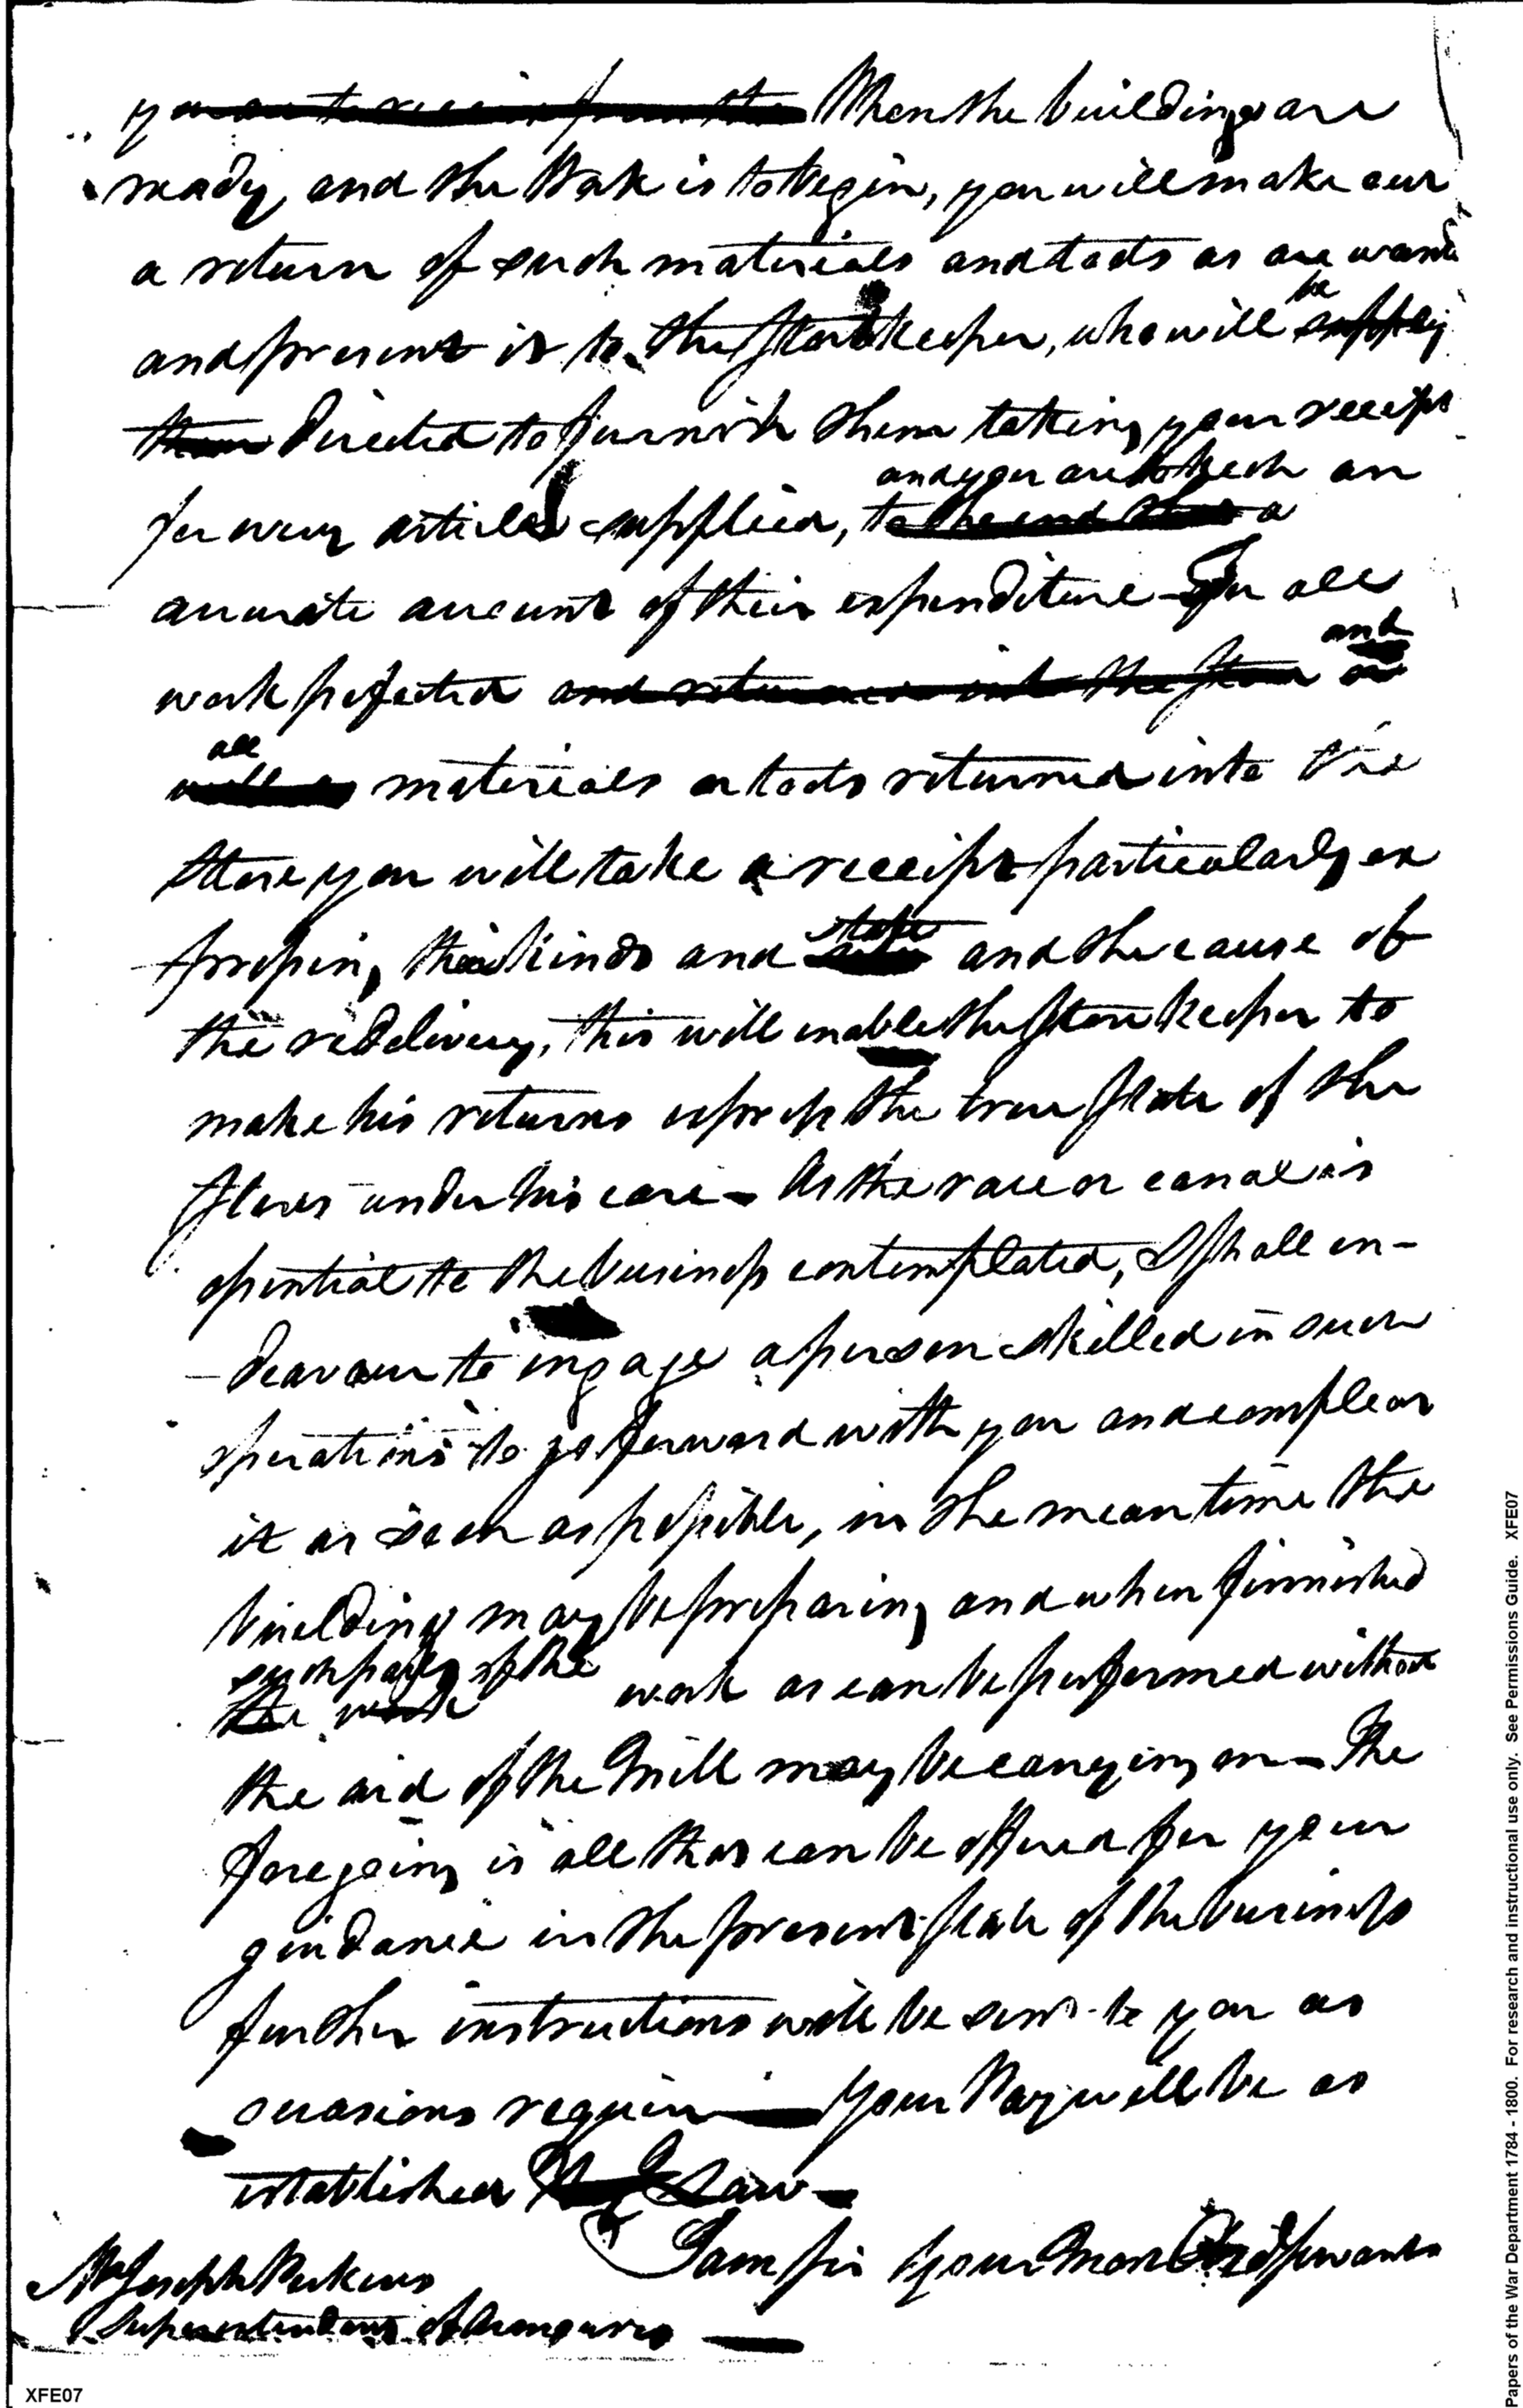 you are to receive from the When the buildings are
ready, and the Work is to begin, you will make our
a return of such materials and tools as are want
and present it to the Store keeper, who will be supply
them directed to furnish them taking your receipt
and you are to keep an
for every article supplied, to the end that a
accurate account of their expenditure For all
and
work perfected and returned into the store or
all
well as materials or tools returned into the
Store you will take a receipt particularly ex
pressing their kinds and state and the cause of
the redelivery, this will enable the Store keeper to
make his returns express the true state of the
stores under his care - As the race or canal is
essential to the business contemplated, I shall en-
deavour to engage a person skilled in such
operations to go forward with you and compleat
it as soon as possible, in the mean time the
building may be preparing and when finnished
such parts of the
the work work as can be performed without
the aid of the Mill may be carrying on - The
foregoing is all that can be offered for your
guidance in the present state of the business
further instructions will be sent to you as
occasions require Your Pay will be as
established by Law -
I am sir your most Obed servant
Mr Joseph Perkins
Superintendant of Armourers
XFE07
Papers of the War Department 1784 - 1800. For research and instructional use only. See Permissions Guide. XFE07